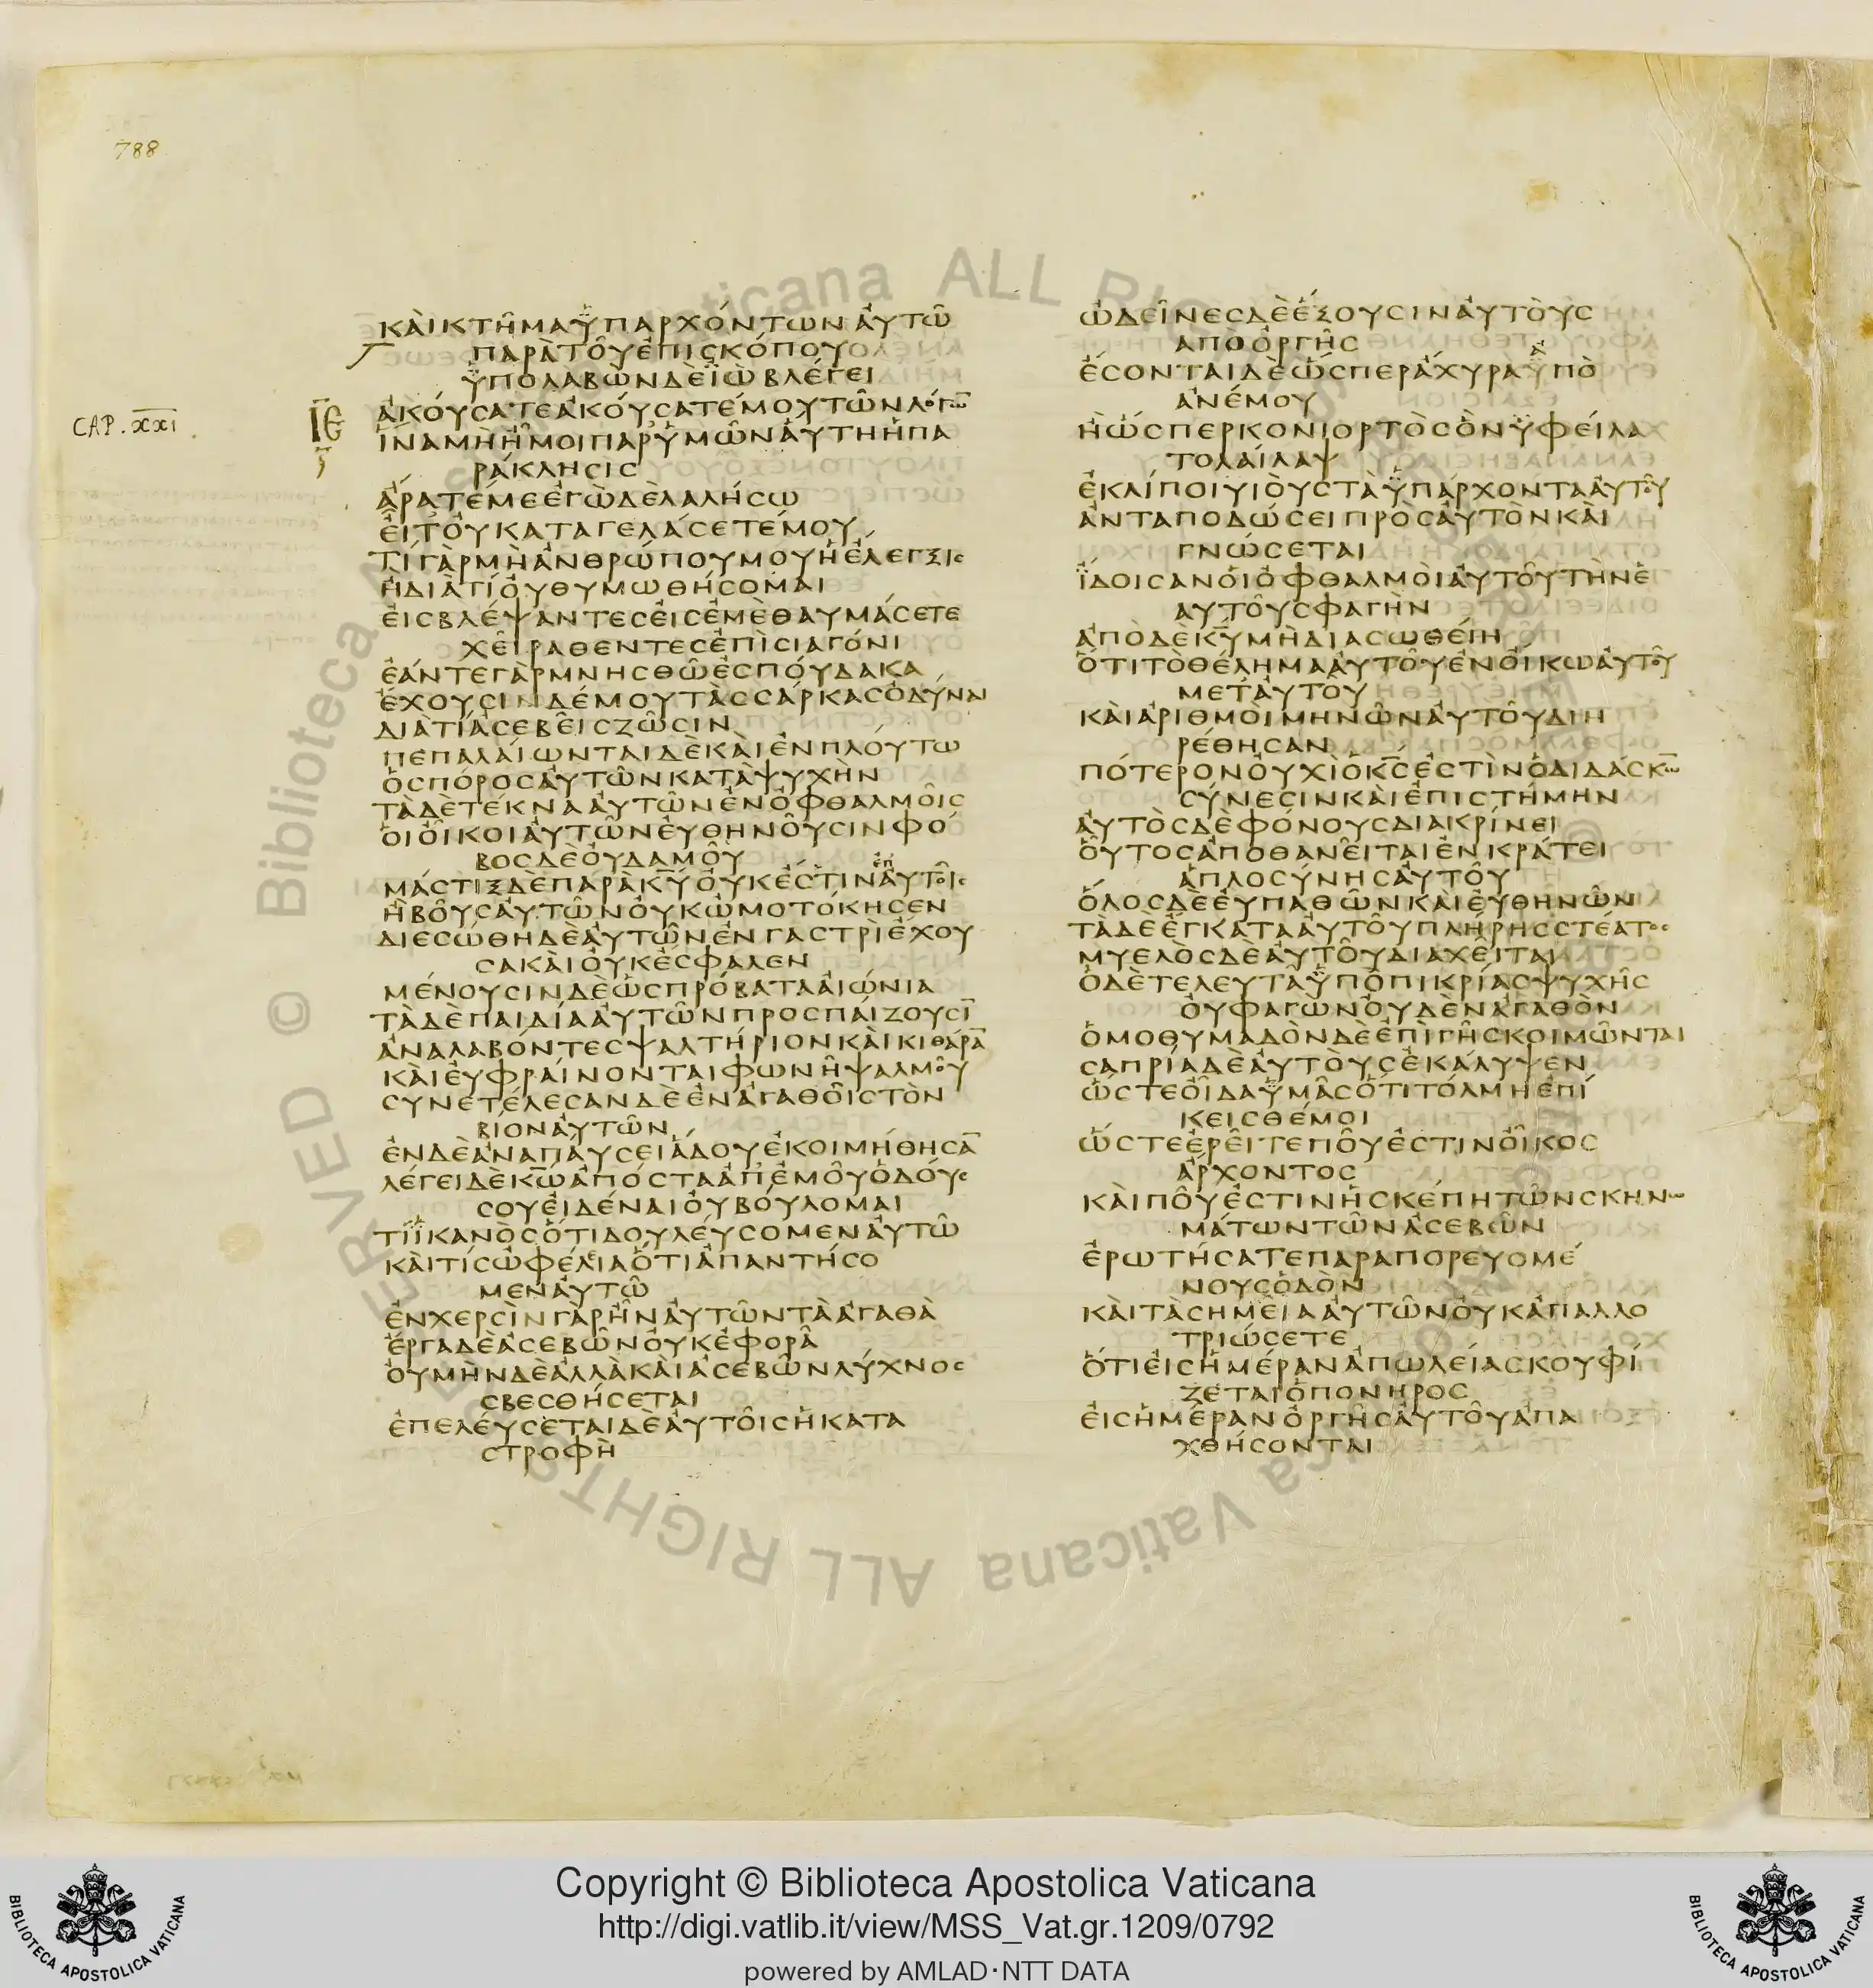 788
ΚΑῚΚΤΗ͂ΜΑΫΠΑΡΧΌΝΤΩΝἈΥΤΩ͂
ΠΑΡᾺΤΟΥ͂ἘΠΙϹΚΌΠΟΥ
ΫΠΟΛΑΒῺΝΔῈΪῺΒΛΈΓΕΙ
CAP. XXI
ΙΕ
ἈΚΟΎϹΑΤΕἈΚΟΎϹΑΤΈΜΟΥΤΩ͂ΝΛΌΓΩ̅
ἽΝΑΜῊἮΜΟΙΠΑΡΫΜΩ͂ΝἈΎΤΗἩΠΑ
ΡΆΚΛΗϹΙϹ
ἌΡΑΤΈΜΕἘΓῺΔῈΛΑΛΉϹΩ
ΕἾΤΟΥΚΑΤΑΓΕΛΆϹΕΤΈΜΟΥ
ΤΊΓᾺΡΜῊἈΝΘΡΏΠΟΥΜΟΥἩἜΛΕΓΞΙϹ
ἪΔΙᾺΤΊΟΥ̓ΘΥΜΩΘΉϹΟΜΑΙ
ΕἸϹΒΛΈΨΑΝΤΕϹΕἸϹἘΜῈΘΑΥΜΆϹΕΤΕ
ΧΕΙ͂ΡΑΘΕΝΤΕϹἘΠῚϹΙΑΓΌΝΙ
ἘΆΝΤΕΓᾺΡΜΝΗϹΘΩ͂ἘϹΠΟΎΔΑΚΑ
ἜΧΟΥϹΙΝΔΈΜΟΥΤᾺϹϹΆΡΚΑϹὈΔΎΝΑΙ
ΔΙᾺΤΊἈϹΕΒΕΙ͂ϹΖΩ͂ϹΙΝ
ΠΕΠΑΛΑΊΩΝΤΑΙΔῈΚΑῚἘΝΠΛΟΎΤΩ
ὉϹΠΌΡΟϹΑΥ̓ΤΩ͂ΝΚΑΤᾺΨΥΧῊΝ
ΤᾺΔῈΤΈΚΝΑΑΥ̓ΤΩ͂ΝἘΝὈΦΘΑΛΜΟΙ͂Ϲ
ΟἹΟἾΚΟΙΑΥ̓ΤΩ͂ΝΕΥ̓ΘΗΝΟΥ͂ϹΙΝΦΌ
ΒΟϹΔῈΟΥ̓ΔΑΜΟΥ͂
ΜΆϹΤΙΞΔῈΠΑΡᾺΚ̅Υ̅ΟΥ̓ΚἜϹΤΙΝἘΠΑΥ̓ΤΟΙ͂Ϲ
ἩΒΟΥ͂ϹΑΥ̓ΤΩ͂ΝΟΥ̓ΚὨΜΟΤΌΚΗϹΕΝ
ΔΙΕϹΏΘΗΔῈΑΥ̓ΤΩ͂ΝἘΝΓΑϹΤΡῚἜΧΟΥ
ϹΑΚΑῚΟΥ̓ΚἜϹΦΑΛΕΝ
ΜΈΝΟΥϹΙΝΔῈὩϹΠΡΌΒΑΤΑΑἸΏΝΙΑ
ΤᾺΔῈΠΑΙΔΊΑΑΥ̓ΤΩ͂ΝΠΡΟϹΠΑΊΖΟΥϹΙ̅
ἈΝΑΛΑΒΌΝΤΕϹΨΑΛΤΉΡΙΟΝΚΑῚΚΙΘΆΡΑ̅
ΚΑῚΕΥ̓ΦΡΑΊΝΟΝΤΑΙΦΩΝΗ͂ΨΑΛΜΟΥ͂
ϹΥΝΕΤΈΛΕϹΑΝΔῈἘΝἈΓΑΘΟΙ͂ϹΤῸΝ
ΒΊΟΝΑΥ̓ΤΩ͂Ν
ἘΝΔῈἈΝΑΠΑΎϹΕΙἍΔΟΥἘΚΟΙΜΉΘΗϹΑ̅
ΛΈΓΕΙΔῈΚ̅Ω̅ἈΠΌϹΤΑἈΠἘΜΟΥ͂ὉΔΟΎϹ
ϹΟΥΕἸΔΈΝΑΙΟΥ̓ΒΟΎΛΟΜΑΙ
ΤΊἹΚΑΝῸϹὍΤΙΔΟΥΛΕΎϹΟΜΕΝΑΥ̓ΤΩ͂
ΚΑῚΤΊϹὨΦΈΛΕΙΑὍΤΙἈΠΑΝΤΉϹΟ
ΜΕΝΑΥ̓ΤΩ͂
ἘΝΧΕΡϹῚΝΓᾺΡἮΝΑΥ̓ΤΩ͂ΝΤᾺἈΓΑΘᾺ
ἜΡΓΑΔῈἈϹΕΒΩ͂ΝΟΥ̓ΚἘΦΟΡΑ͂
ΟΥ̓ΜῊΝΔῈἈΛΛᾺΚΑῚἈϹΕΒΩ͂ΝΛΎΧΝΟϹ
ϹΒΕϹΘΉϹΕΤΑΙ
ἘΠΕΛΕΎϹΕΤΑΙΔΕΑΥ̓ΤΟΙ͂ϹἩΚΑΤΑ
ϹΤΡΟΦῊ
ὨΔΕΙ͂ΝΕϹΔῈἝΞΟΥϹΙΝΑΥ̓ΤΟῪϹ
ΑΠῸὈΡΓΗ͂Ϲ
ἜϹΟΝΤΑΙΔῈὭϹΠΕΡἌΧΥΡΑΫΠῸ
ἈΝΈΜΟΥ
ἪὭϹΠΕΡΚΟΝΙΟΡΤῸϹὋΝΫΦΕΊΛΑ
ΤΟΛΑΊΛΑΨ
ἘΚΛΊΠΟΙΥΙΟῪϹΤᾺΫΠΆΡΧΟΝΤΑΑΥ̓ΤΟΥ͂
ἈΝΤΑΠΟΔΏϹΕΙΠΡῸϹΑΥ̓ΤῸΝΚΑῚ
ΓΝΏϹΕΤΑΙ
ἼΔΟΙϹΑΝΟἹὈΦΘΑΛΜΟῚΑΥ̓ΤΟΥ͂ΤῊΝἙ
ΑΥΤΟΥ͂ϹΦΑΓῊΝ
ἈΠῸΔῈΚ̅Υ̅ΜῊΔΙΑϹΩΘΕΊΗ
ὍΤΙΤῸΘΈΛΗΜΑΑΥ̓ΤΟΥ͂ἘΝΟἼΚΩΑΥ̓ΤΟΥ͂
ΜΕΤΑΥ̓ΤΟΥ͂
ΚΑῚἈΡΙΘΜΟῚΜΗΝΩ͂ΝΑΥ̓ΤΟΥ͂ΔΙΗ
ΡΈΘΗϹΑΝ
ΠΌΤΕΡΟΝΟΥ̓ΧῚὉΚ̅Ϲ̅ἘϹΤῚΝὉΔΙΔΆϹΚΩ̅
ϹΎΝΕϹΙΝΚΑῚἘΠΙϹΤΉΜΗΝ
ΑΥ̓ΤῸϹΔῈΦΌΝΟΥϹΔΙΑΚΡΊΝΕΙ
ΟΥ͂ΤΟϹἈΠΟΘΑΝΕΙ͂ΤΑΙἘΝΚΡΆΤΕΙ
ἉΠΛΟϹΎΝΗϹΑΥ̓ΤΟΥ͂
ὍΛΟϹΔῈΕΥ̓ΠΑΘΩ͂ΝΚΑῚΕΥ̓ΘΗΝΩ͂Ν
ΤᾺΔῈἜΓΚΑΤΑΑΥ̓ΤΟΥ͂ΠΛΉΡΗϹϹΤΈΑΤΟϹ
ΜΥΕΛῸϹΔῈΑΥ̓ΤΟΥ͂ΔΙΑΧΕΙ͂ΤΑΙ
ὉΔῈΤΕΛΕΥΤΑ͂ΫΠῸΠΙΚΡΊΑϹΨΥΧΗ͂Ϲ
ΟΥ̓ΦΑΓῺΝΟΥ̓ΔῈΝἈΓΑΘῸΝ
ὉΜΟΘΥΜΑΔῸΝΔῈἘΠῚΓΗ͂ϹΚΟΙΜΩ͂ΝΤΑΙ
ϹΑΠΡΊΑΔῈΑΥ̓ΤΟῪϹἘΚΆΛΥΨΕΝ
ὭϹΤΕΟἾΔΑΫΜΑ͂ϹὍΤΙΤΌΛΜΗἘΠΊ
ΚΕΙϹΘΈΜΟΙ
ὭϹΤΕἘΡΕΙ͂ΤΕΠΟΥ͂ἘϹΤΙΝΟἾΚΟϹ
ἌΡΧΟΝΤΟϹ
ΚΑῚΠΟΥ͂ἘϹΤΙΝἩϹΚΈΠΗΤΩ͂ΝϹΚΗΝΩ
ΜΆΤΩΝΤΩ͂ΝἈϹΕΒΩ͂Ν
ἘΡΩΤΉϹΑΤΕΠΑΡΑΠΟΡΕΥΟΜΈ
ΝΟΥϹὉΔῸΝ
ΚΑῚΤᾺϹΗΜΕΙ͂ΑΑΥ̓ΤΩ͂ΝΟΥ̓ΚἈΠΑΛΛΟ
ΤΡΙΏϹΕΤΕ
ὍΤΙΕἸϹἩΜΈΡΑΝἈΠΩΛΕΊΑϹΚΟΥΦΊ
ΖΕΤΑΙὉΠΟΝΗΡΟϹ
ΕἸϹἩΜΈΡΑΝὈΡΓΗ͂ϹΑΥ̓ΤΟΥ͂ἈΠΑ
ΧΘΉϹΟΝΤΑΙ
Copyright © Biblioteca Apostolica Vaticana
http://digi.vatlib.it/view/MSS_Vat.gr.1209/0792
powered by AMLAD·NTT DATA
BIBLIOTECA APOSTOLICA VATICANA
BIBLIOTECA APOSTOLICA VATICANA